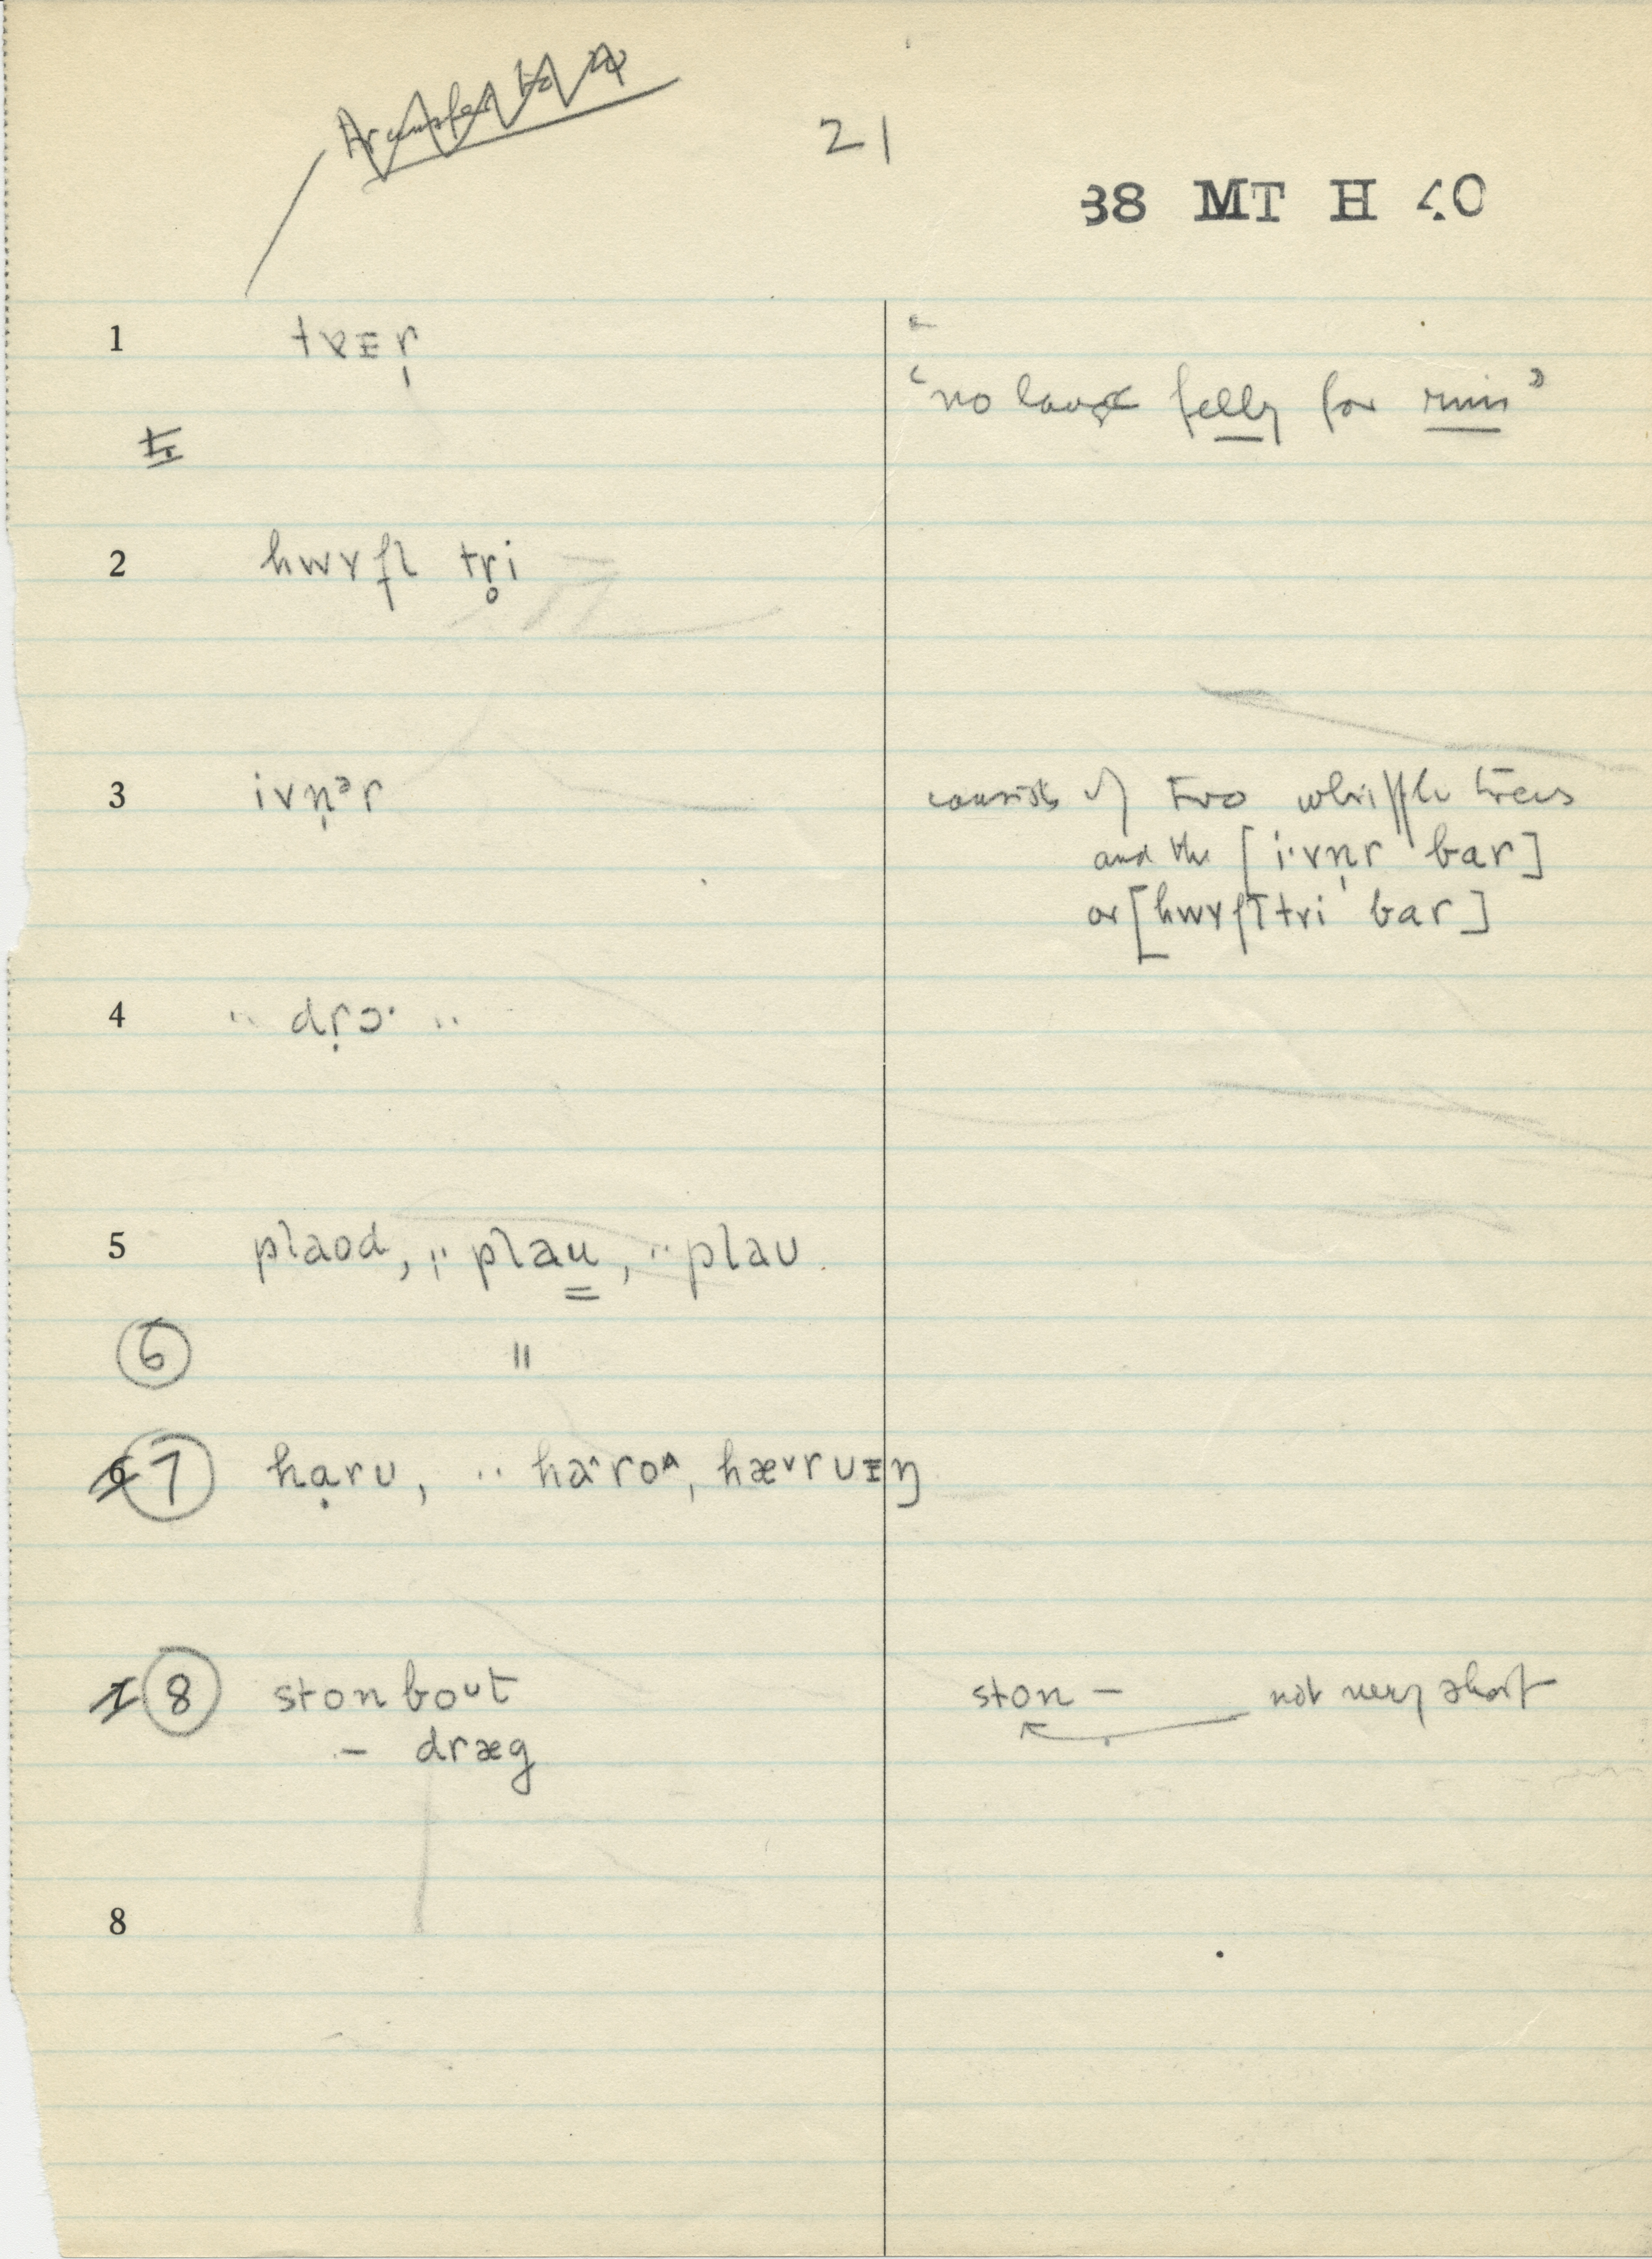 21
38 MT H 40
1 taɪr̩
"no felly for rim"
2 hwɤfl̩ tr̥i
3 ivn̩ᵊr consists of two whipple trees
and the [i·vn̩r bar]
or [hwɤfl̩tri bar]
4 ·· dṛɔ· ··
5 plaod, ·· plau, ·· plaʊ
6 "
7 hạrʊ, ·· ha^ro^, hæ˅rʊɪŋ
8 ston boᵘt ston – not very short
– dræg
8